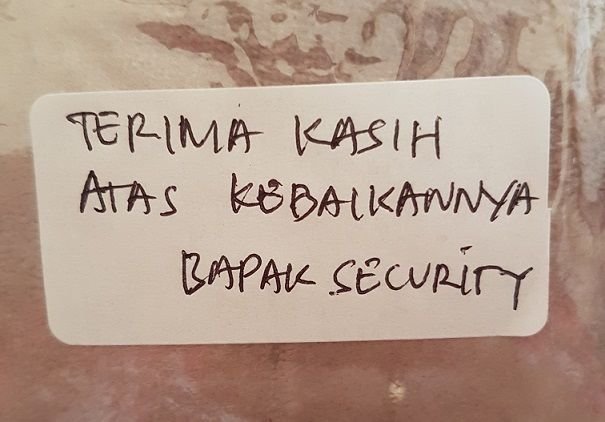 TERIMA KASIH
ATAS KEBAIKANNYA
BAPAK SECURITY